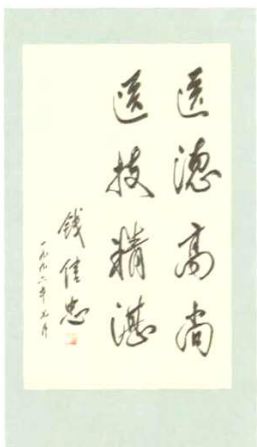 医德高尚
医技精湛
钱信忠
一九九六年元月